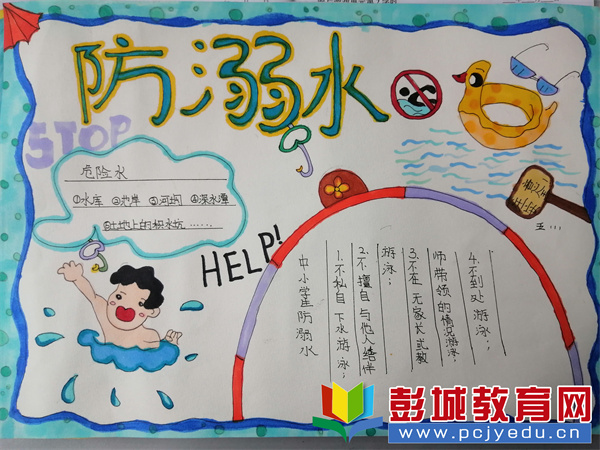 防溺水
STOP
危险水
①水库 ②池岸 ③河坝 ④深水潭
⑤土地上的积水坑……
HELP!
五...
4.不到处游泳；
师带领的情况游泳；
3.不在无家长或教
游泳；
2.不擅自与他人结伴
1.不私自下水游泳；
中小学生防溺水
彭城教育网
www.pcjyedu.cn